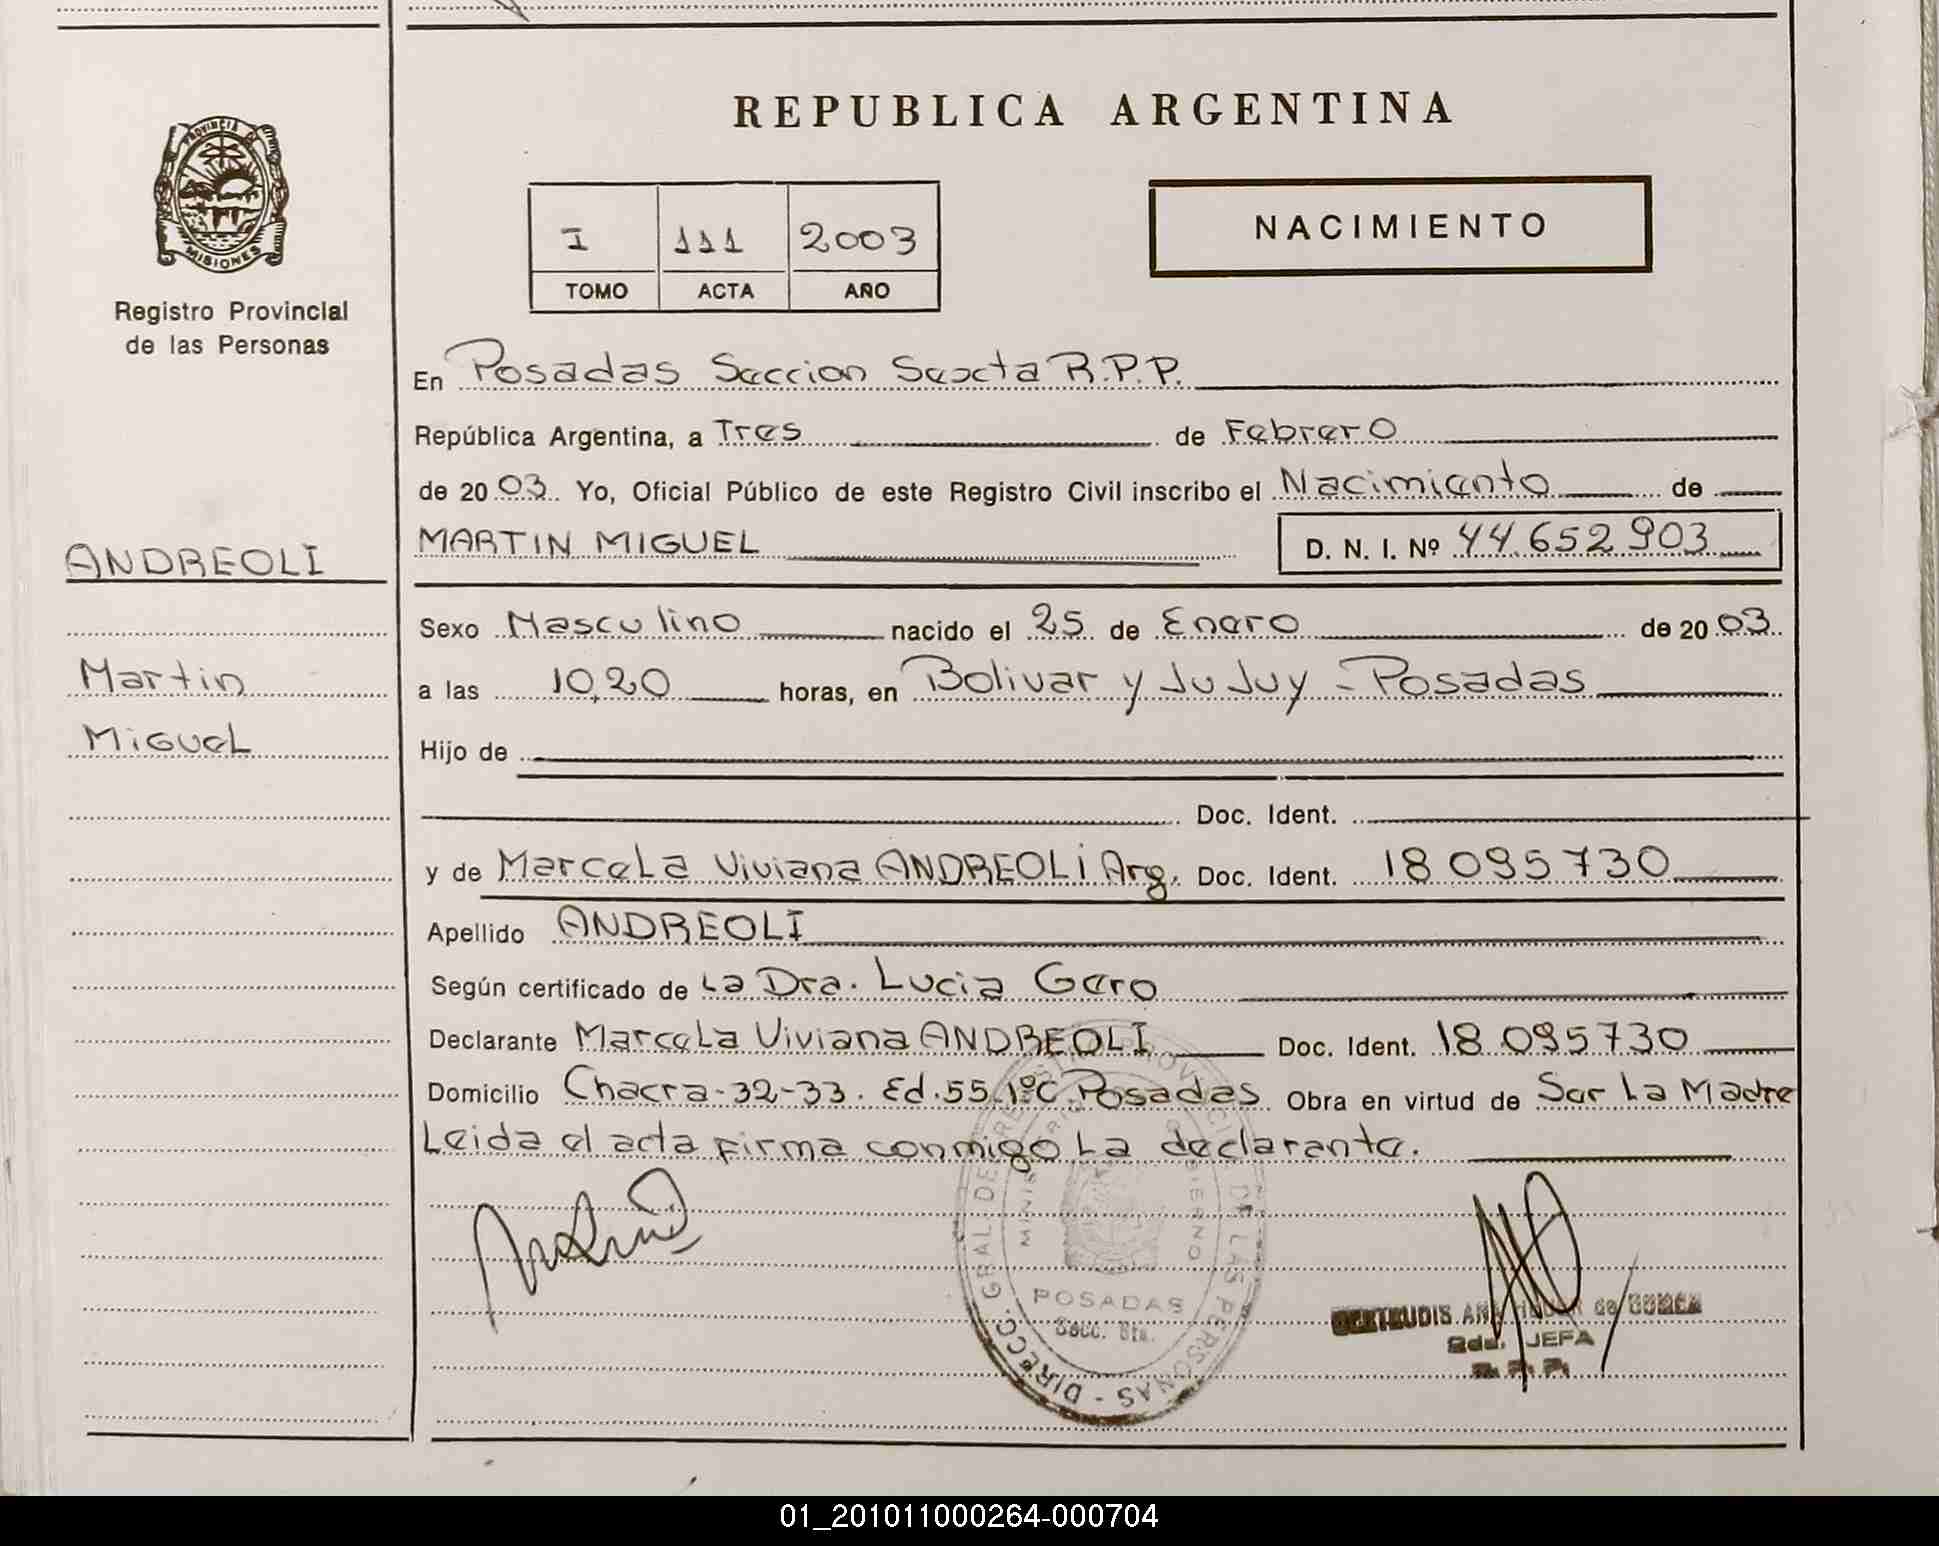 PROVINCIA DE
MISIONES
Registro Provincial
de las Personas
ANDREOLI
Martin
Miguel
REPUBLICA ARGENTINA
I 111 2003
TOMO ACTA AÑO
NACIMIENTO
En Posadas Seccion Sexta R.P.P.
República Argentina, a Tres de Febrero
de 2003. Yo, Oficial Público de este Registro Civil inscribo el Nacimiento de
MARTIN MIGUEL D. N. I. Nº 44.652.903
Sexo Masculino nacido el 25 de Enero de 2003
a las 10,20 horas, en Bolivar y JuJuy - Posadas
Hijo de
Doc. Ident.
y de Marcela Viviana ANDREOLI Arg. Doc. Ident. 18 095 730
Apellido ANDREOLI
Según certificado de La Dra. Lucia Gero
Declarante Marcela Viviana ANDREOLI Doc. Ident. 18 095 730
Domicilio Chacra-32-33. Ed. 55. 1ºC. Posadas Obra en virtud de Ser La Madre
Leida el acta firma conmigo La declarante.
DIRECC. GRAL. DE REGISTRO PROVINCIAL DE LAS PERSONAS -
MINISTERIO GOBIERNO
POSADAS
Secc. 6ta.
GERTRUDIS ANA de
JEFA
R.P.P.
01_201011000264-000704